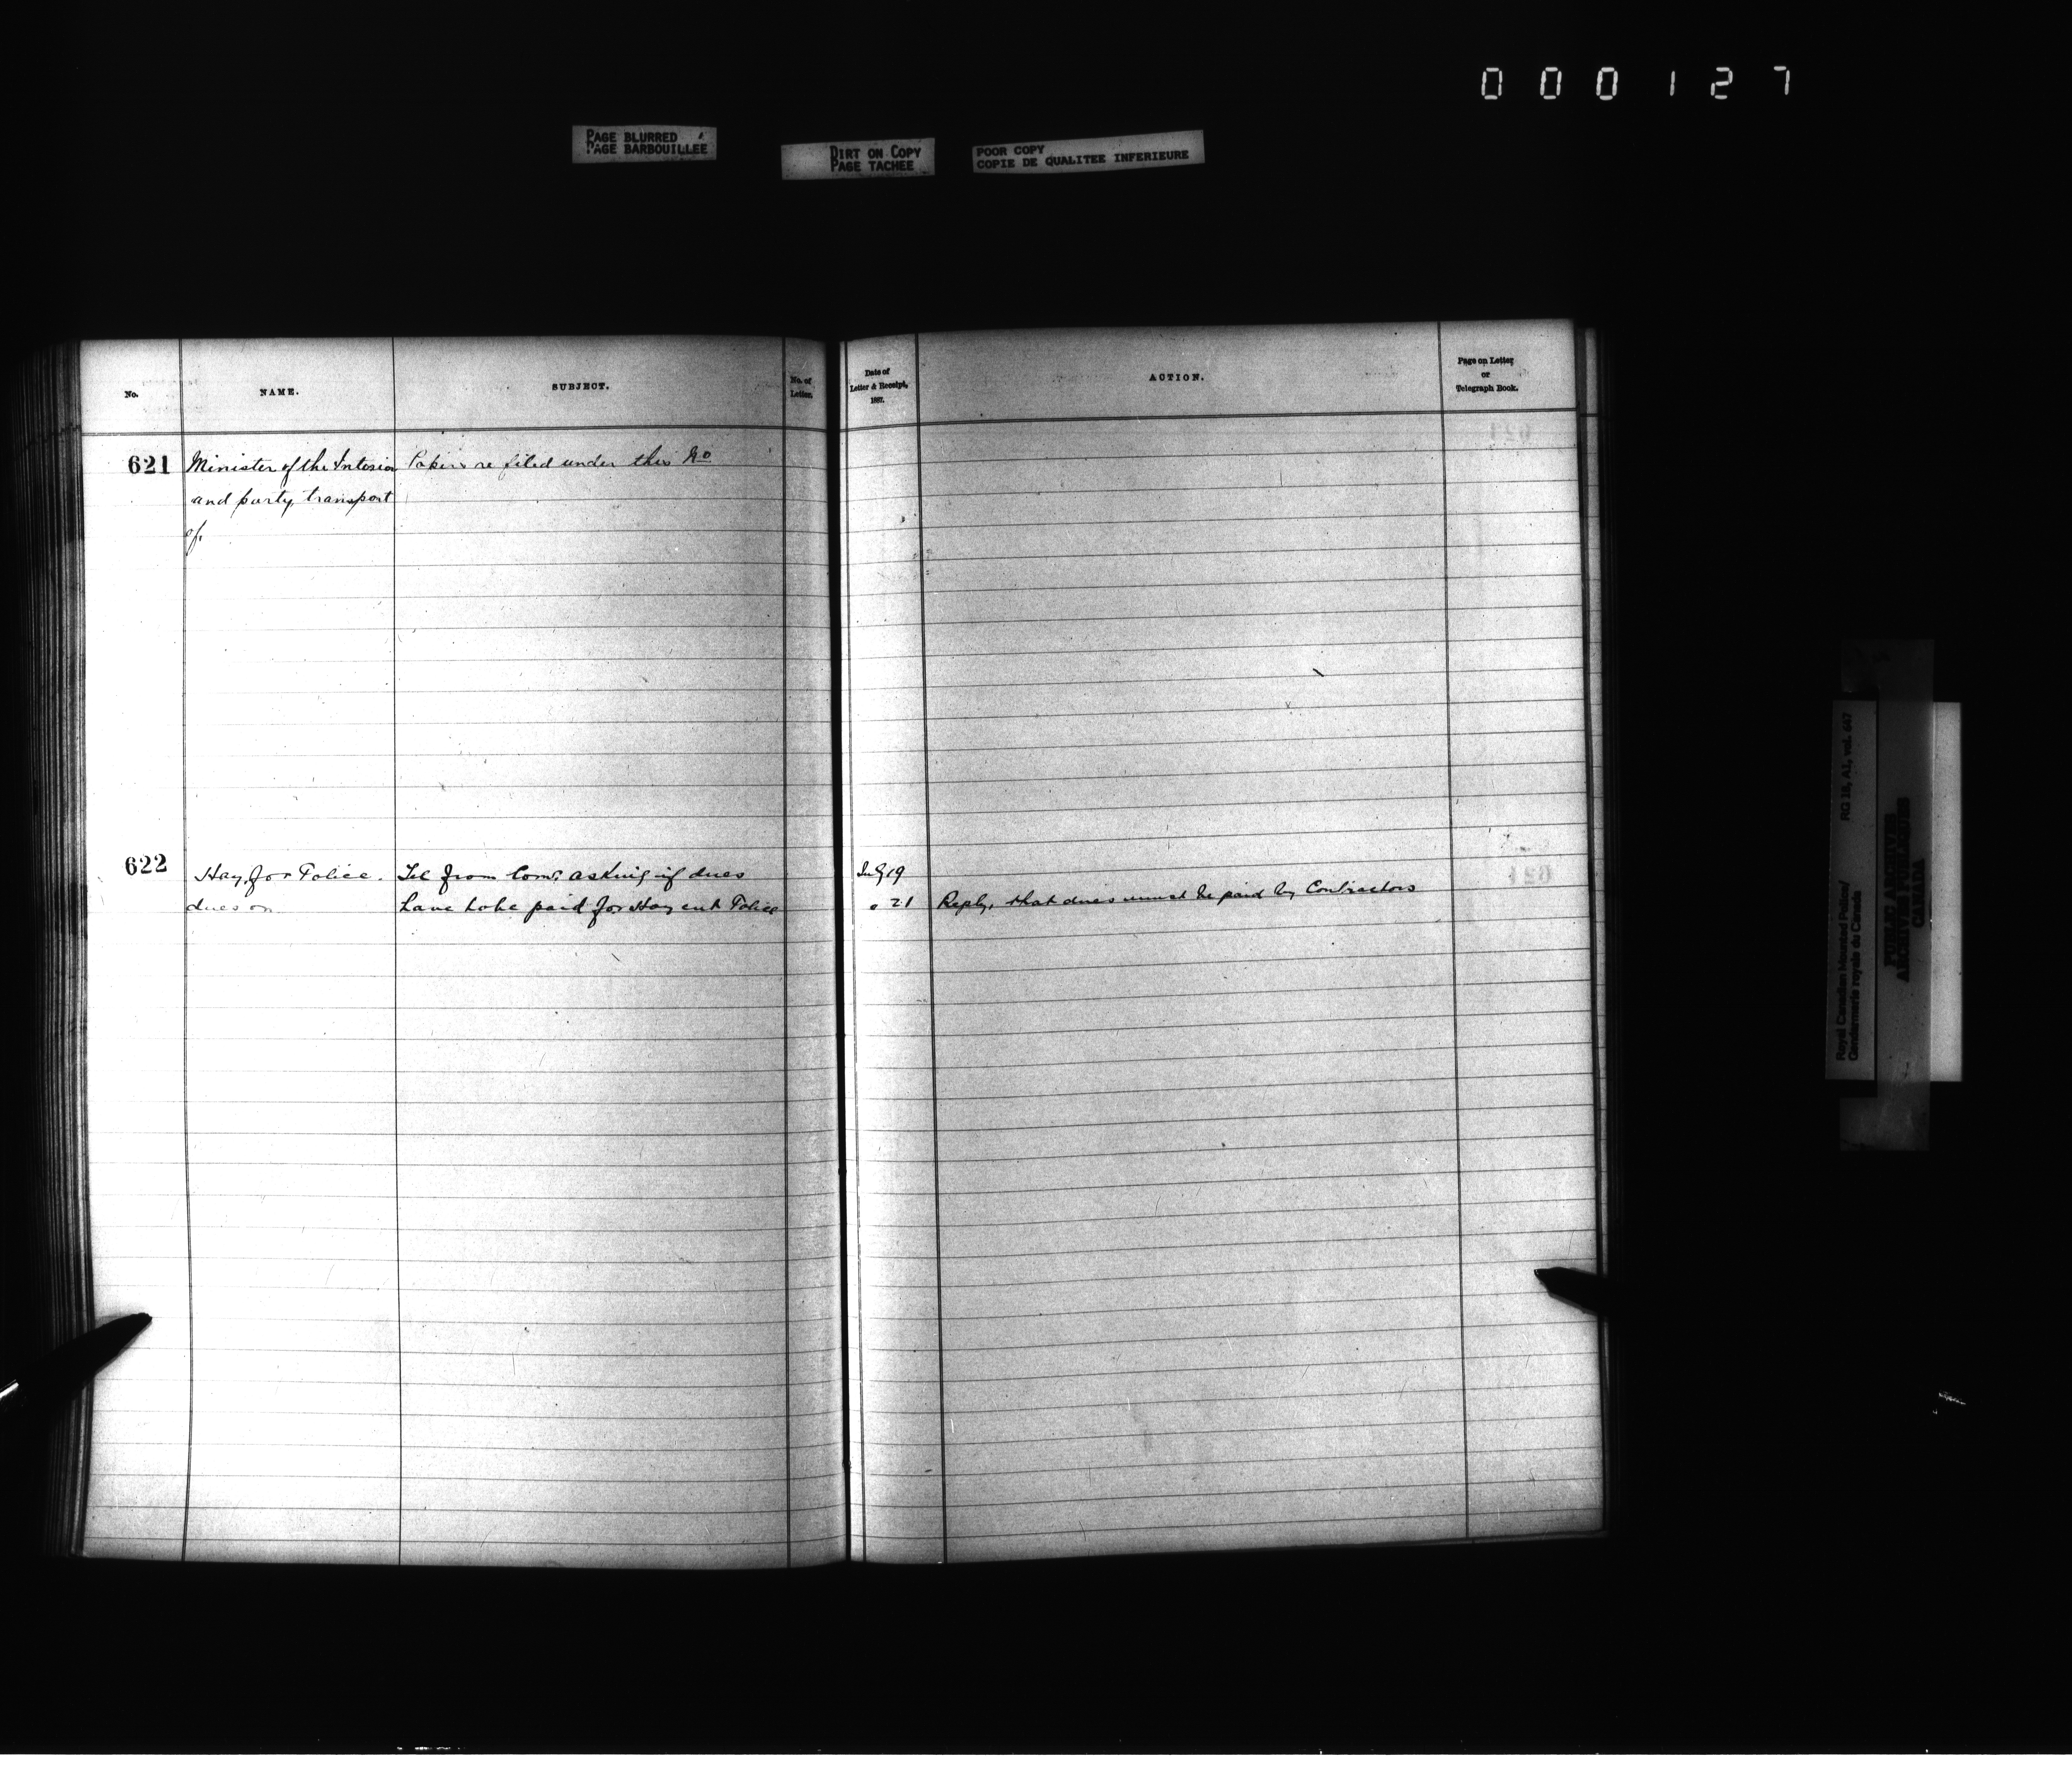 000127
PAGE BLURRED
PAGE BARBOUILLEE
DIRT ON COPY
PAGE TACHEE
POOR COPY
COPIE DE QUALITEE INFERIEURE
No.
NAME.
SUBJECT.
No. of
Letter.
Date of
Letter & Receipt,
1887.
ACTION.
Page on Letter
or
Telegraph Book.
621 Minister of the Interior Papers re filed under this No
and party, transport
of.
622 Hay, for Police. Tel from Comr asking if dues July 19
dues on have to be paid for Hay cut Police " 21 Reply, that dues must be paid by Contractors
Royal Canadian Mounted Police/
Gendarmerie royale du Canada
RG 18, A1, vol. 647
PUBLIC ARCHIVES
ARCHIVES PUBLIQUES
CANADA